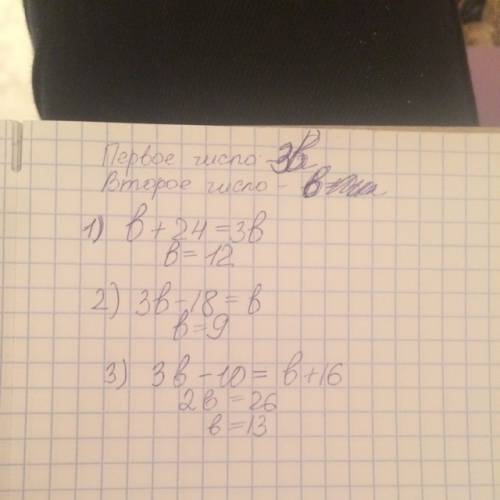 Первое число - 3в
Второе число - в
1) в + 24 = 3в
в = 12
2) 3в - 18 = в
в = 9
3) 3в - 10 = в + 16
2в = 26
в = 13